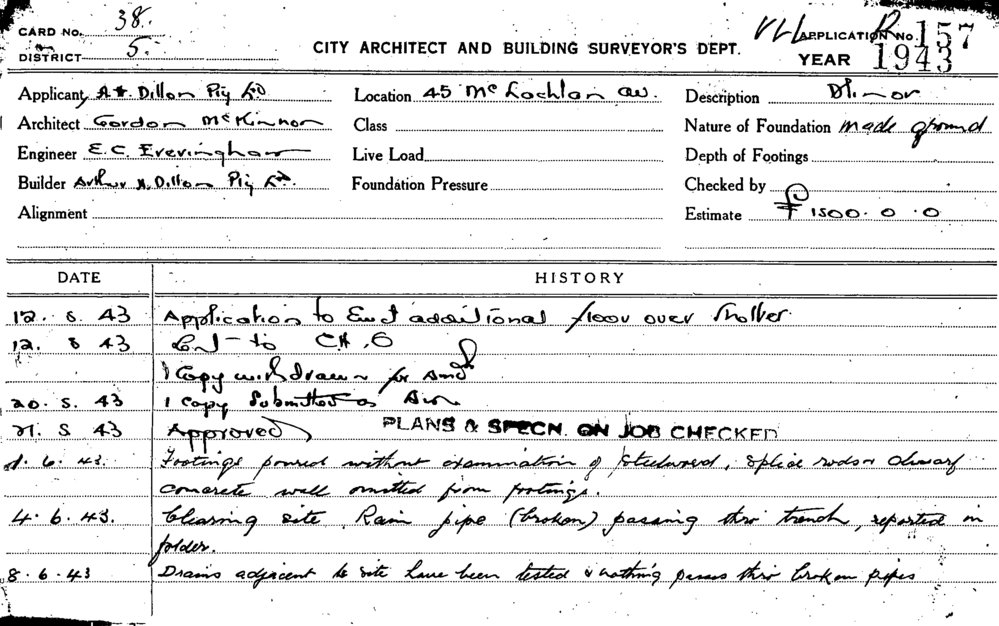 CARD No. 38.
DISTRICT 5.
CITY ARCHITECT AND BUILDING SURVEYOR'S DEPT.
APPLICATION No. 157
YEAR 1943
Applicant A.H. Dillon Pty Ltd
Location 45 McLachlan av.
Description Minor
Architect Gordon McKinnon
Class
Nature of Foundation made ground
Engineer E.C. Everingham
Live Load
Depth of Footings
Builder Arthur H. Dillon Pty Ltd.
Foundation Pressure
Checked by
Alignment
Estimate £1500.0.0
DATE HISTORY
12. 5. 43 Application to Erect additional floor over Shelter
12. 5 43 to C.H.O
1 Copy withdrawn for Amdt
20. 5. 43 1 Copy Submitted as
21. 5 43 Approved PLANS & SPECN. ON JOB CHECKED
1. 6. 43. Footings poured without examination of steelwork, splice rods dwarf
concrete wall omitted from footings.
4. 6. 43. Clearing site. Rain pipe (broken) passing thro trench, reported in
folder.
8. 6. 43 Drains adjacent to site have been tested & nothing passes thro broken pipes